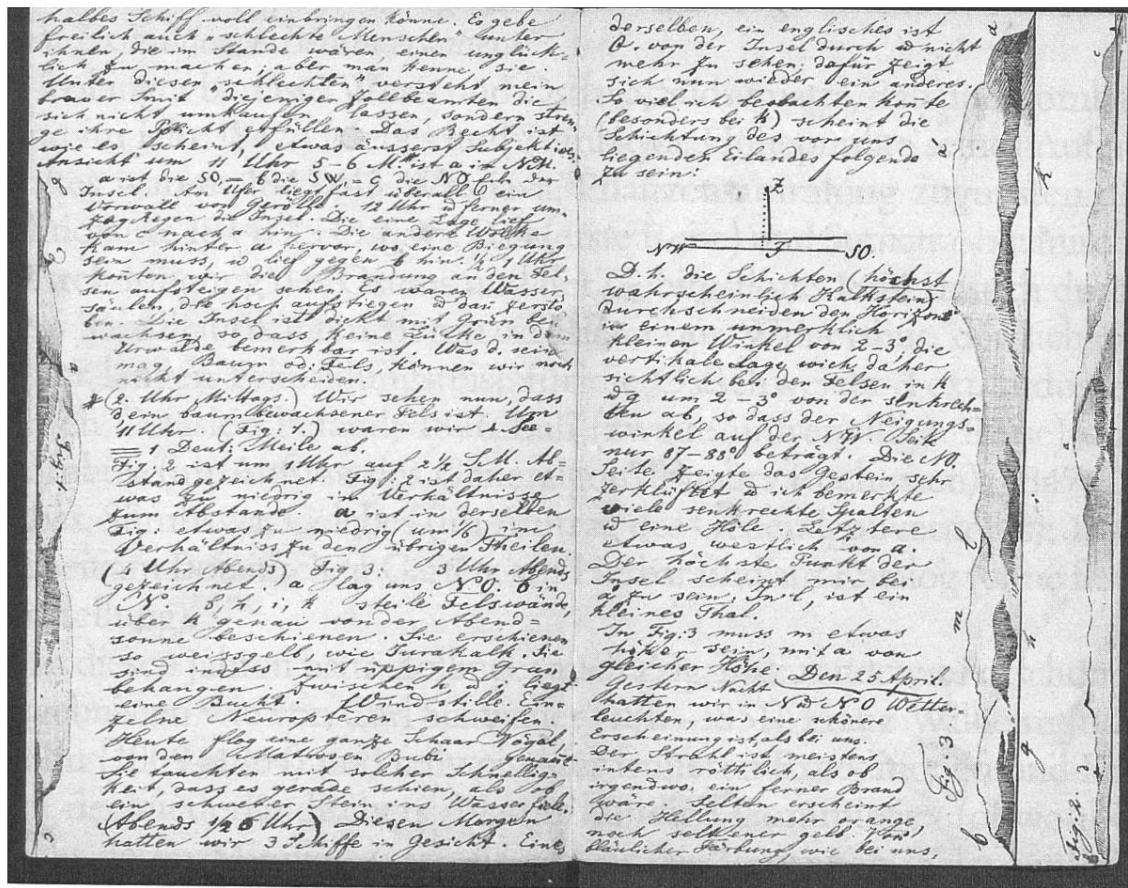 halbes Schiff voll einbringen könne. Es gebe
freilich auch „schlechte Menschen" unter
ihnen, die im Stande wären einen unglück-
lich zu machen; aber man kenne sie.
Unter diesen „schlechten" versteht mein
braver Smit diejenigen Zollbeamten die
sich nicht umkaufen lassen, sondern stren-
ge ihre Pflicht erfüllen. Das Recht ist
wie es scheint, etwas äusserst Subjektives.
Ansicht um 11 Uhr 5-6 M ist a in
a ist die SO. – b die SW. – c die NO Ecke der
Insel. Am Ufer liegt fast überall ein
Vorwall von Geröll. 12 Uhr ferner um-
zog Regen die Insel. Die eine Lage lief
von c nach a hin. Die andere Wolke
kam hinter a hervor, wo eine Biegung
sein muss, & lief gegen b hin. ½ 1 Uhr
konten wir die Brandung an den Fel-
sen aufsteigen sehen. Es waren Wasser-
säulen, die hoch aufstiegen & dan zersto-
ben. Die Insel ist dicht mit Grün be-
wachsen, so dass keine Lücke in dem
Urwalde bemerkbar ist. Was d. sein
mag, Baum od. Fels, können wir noch
nicht unterscheiden.
(2. Uhr, Mittags.) Wir sehen nun, dass
d ein baumbewachsener Fels ist. Um
11 Uhr (Fig: 1.) waren wir 4 See-
= 1 Deut: Meile ab.
Fig: 2 ist um 1 Uhr auf 2½ S.M. Ab-
stand gezeichnet. Fig: 2 ist daher et-
was zu niedrig im Verhältnisse
zum Abstande. a ist in derselben
Fig. etwas zu niedrig (um ⅙) im
Verhältniss zu den übrigen Theilen.
(4 Uhr Abends) Fig 3. 3 Uhr Abends
gezeichnet. a lag uns N.O. b in
N. g, h, i, k steile Felswände,
über k genau von der Abend-
sonne beschienen. Sie erschienen
so weissgelb, wie Jurakalk. Sie
sind indess mit üppigem Grün
behangen. Zwischen h & liegt
eine Bucht. Windstille. Ein-
zelne Neuropteren schweifen.
Heute flog eine ganze Schaar Vögel,
von den Matrosen Bubi genannt
Sie tauchten mit solcher Schnellig-
keit, dass es gerade schien, als ob
ein schwerer Stein ins Wasser fiele.
(Abends ½ 6 Uhr) Diesen Morgen
hatten wir 3 Schiffe in Gesicht. Eines
Fig: 1.
derselben, ein englisches ist
O. von der Insel durch & nicht
mehr zu sehen; dafür zeigt
sich nun wieder ein anderes.
So viel ich beobachten konte
(besonders bei k) scheint die
Schichtung des vor uns
liegenden Eilandes folgende
zu sein:
Z
NW
SO.
D. h. die Schichten (höchst
wahrscheinlich Kalkstein)
durchschneiden den Horizont
in einem unmerklich
kleinen Winkel von 2-3°, die
vertikale Lage wich, daher
sichtlich bei den Felsen in k
& g um 2-3° von der senkrech-
ten ab, so dass der Neigungs-
winkel auf der NW. Seite
nur 87-88° beträgt. Die NO.
Seite zeigte das Gestein sehr
zerklüftet & ich bemerkte
viele senkrechte Spalten
& eine Höle. Letztere
etwas westlich von a.
Der höchste Punkt der
Insel scheint mir bei
a zu sein; In l, ist ein
kleines Thal.
In Fig: 3 muss m etwas
höher sein, mit a von
gleicher Höhe. Den 25 April.
Gestern Nacht
hatten wir in NW & NO Wetter-
leuchten, was eine schönere
Erscheinung ist als bei uns.
Der Strahl ist meistens
intens röthlich, als ob
irgendwo ein ferner Brand
wäre. Selten erscheint
die Hellung mehr orange,
noch seltener gelb. Von
bläulicher Färbung, wie bei uns,
a
k
l
m
i
h
g
b
Fig. 3
c
a
d
Fig: 2.